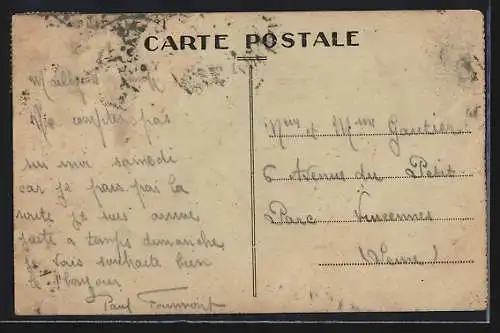 CARTE POSTALE
Mailly
Ne comptes pas
sur moi samedi
car je pars pas la
route je suis arrivé
juste a temps dimanche
je vais souhaite bien
le bonjour
Paul
Mr et Mme Gautier
6 Avenue du Petit
Parc Vincennes
(Seine)